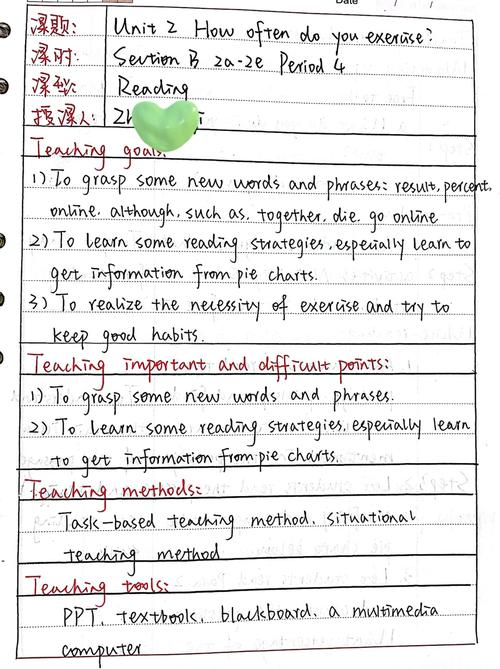 Date
课题: Unit 2 How often do you exercise?
课时: Section B 2a-2e Period 4
课型: Reading
授课人: Zh
Teaching goals:
1) To grasp some new words and phrases: result, percent,
online, although, such as, together, die, go online
2) To learn some reading strategies, especially learn to
get information from pie charts.
3) To realize the necessity of exercise and try to
keep good habits.
Teaching important and difficult points:
1) To grasp some new words and phrases.
2) To learn some reading strategies, especially learn
to get information from pie charts.
Teaching methods:
Task-based teaching method, situational
teaching method
Teaching tools:
PPT, textbook, blackboard, a multimedia
computer